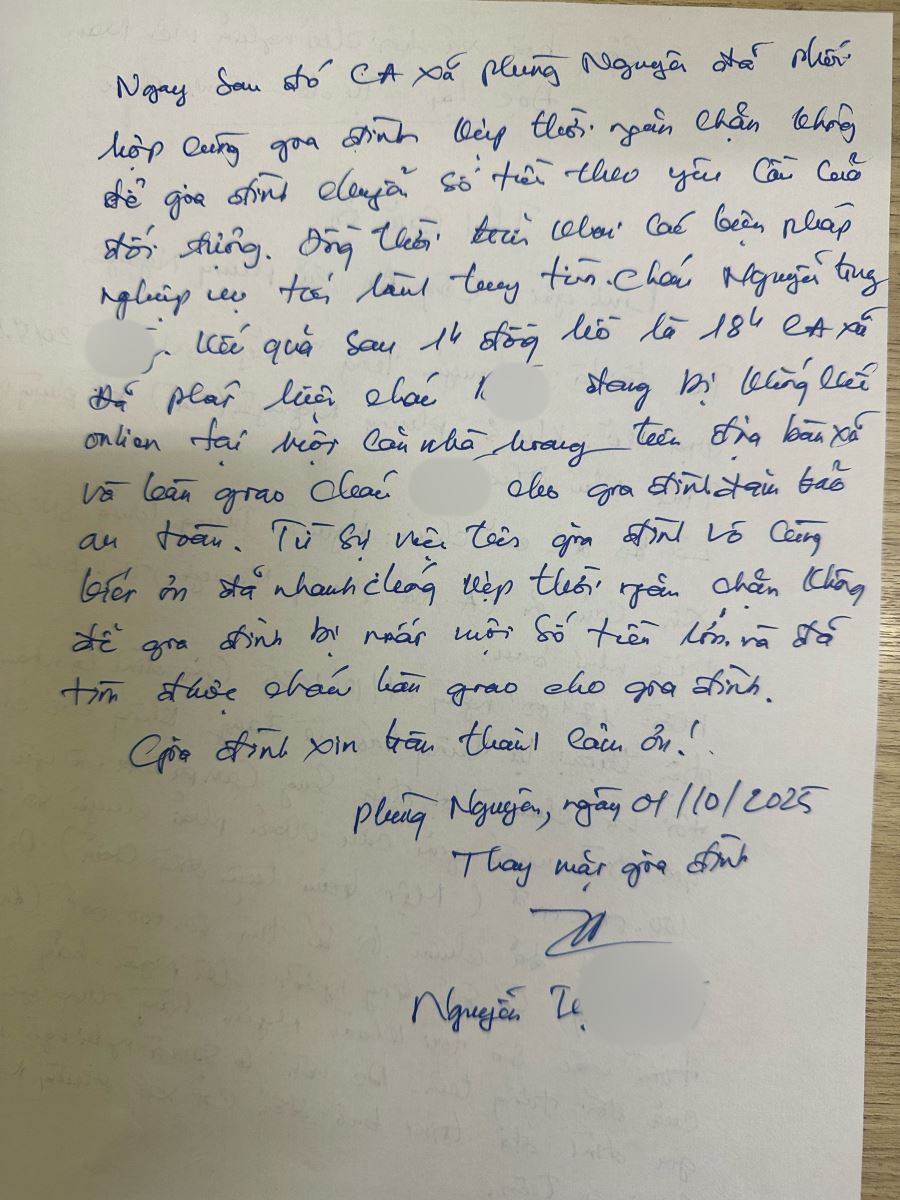 Ngay sau đó CA xã phùng Nguyên đã phối
hợp cùng gia đình kịp thời ngăn chặn không
để gia đình chuyển số tiền theo yêu cầu của
đối tượng. Đồng thời triển khai các biện pháp
nghiệp vụ tiến hành truy tìm cháu Nguyễn Tùng
Kết quả sau 1h đồng hồ là 18h CA xã
Đã phát hiện cháu đang bị khống chế
onlien tại một căn nhà hoang trên địa bàn xã
và bàn giao cháu cho gia đình đảm bảo
an toàn. Từ sự việc trên gia đình vô cùng
biết ơn đã nhanh chóng kịp thời ngăn chặn không
để gia đình bị mất một số tiền lớn và đã
tìm được cháu bàn giao cho gia đình.
Gia đình xin trân thành cảm ơn!
Phùng Nguyên, ngày 01/10/2025
Thay mặt gia đình
Nguyễn